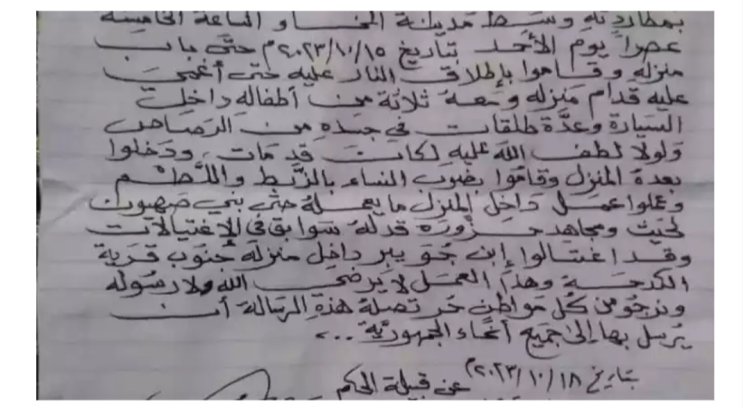 بمطاردته وسط مدينة المخا و الساعة الخامسة
عصراً يوم الأحد بتاريخ ٢٠٢٣/١٠/١٥م حتى باب
منزله وقاموا بإطلاق النار عليه حتى أغمي
عليه قدام منزله ومعه ثلاثة من أطفاله داخل
السيارة وعدة طلقات في جسده من الرصاص
ولولا لطف الله عليه لكانت قد مات ودخلوا
بعدة المنزل وقاموا بضرب النساء بالزبط واللطم
وعملوا عمل داخل المنزل ما يعملة حتى بني صهيون
لحيث ومجاهد حزورة قد له سوابق في الاغتيالات
وقد اغتالوا إبن جوبير داخل منزله جنوب قرية
الكدحة وهذا العمل لا يرضي الله ولا رسوله
ونرجو من كل مواطن حر تصلة هذة الرسالة أن
يرسل بها إلى جميع أنحاء الجمهورية ...
بتاريخ ٢٠٢٣/١٠/١٨م
عن قبيلة الحكم